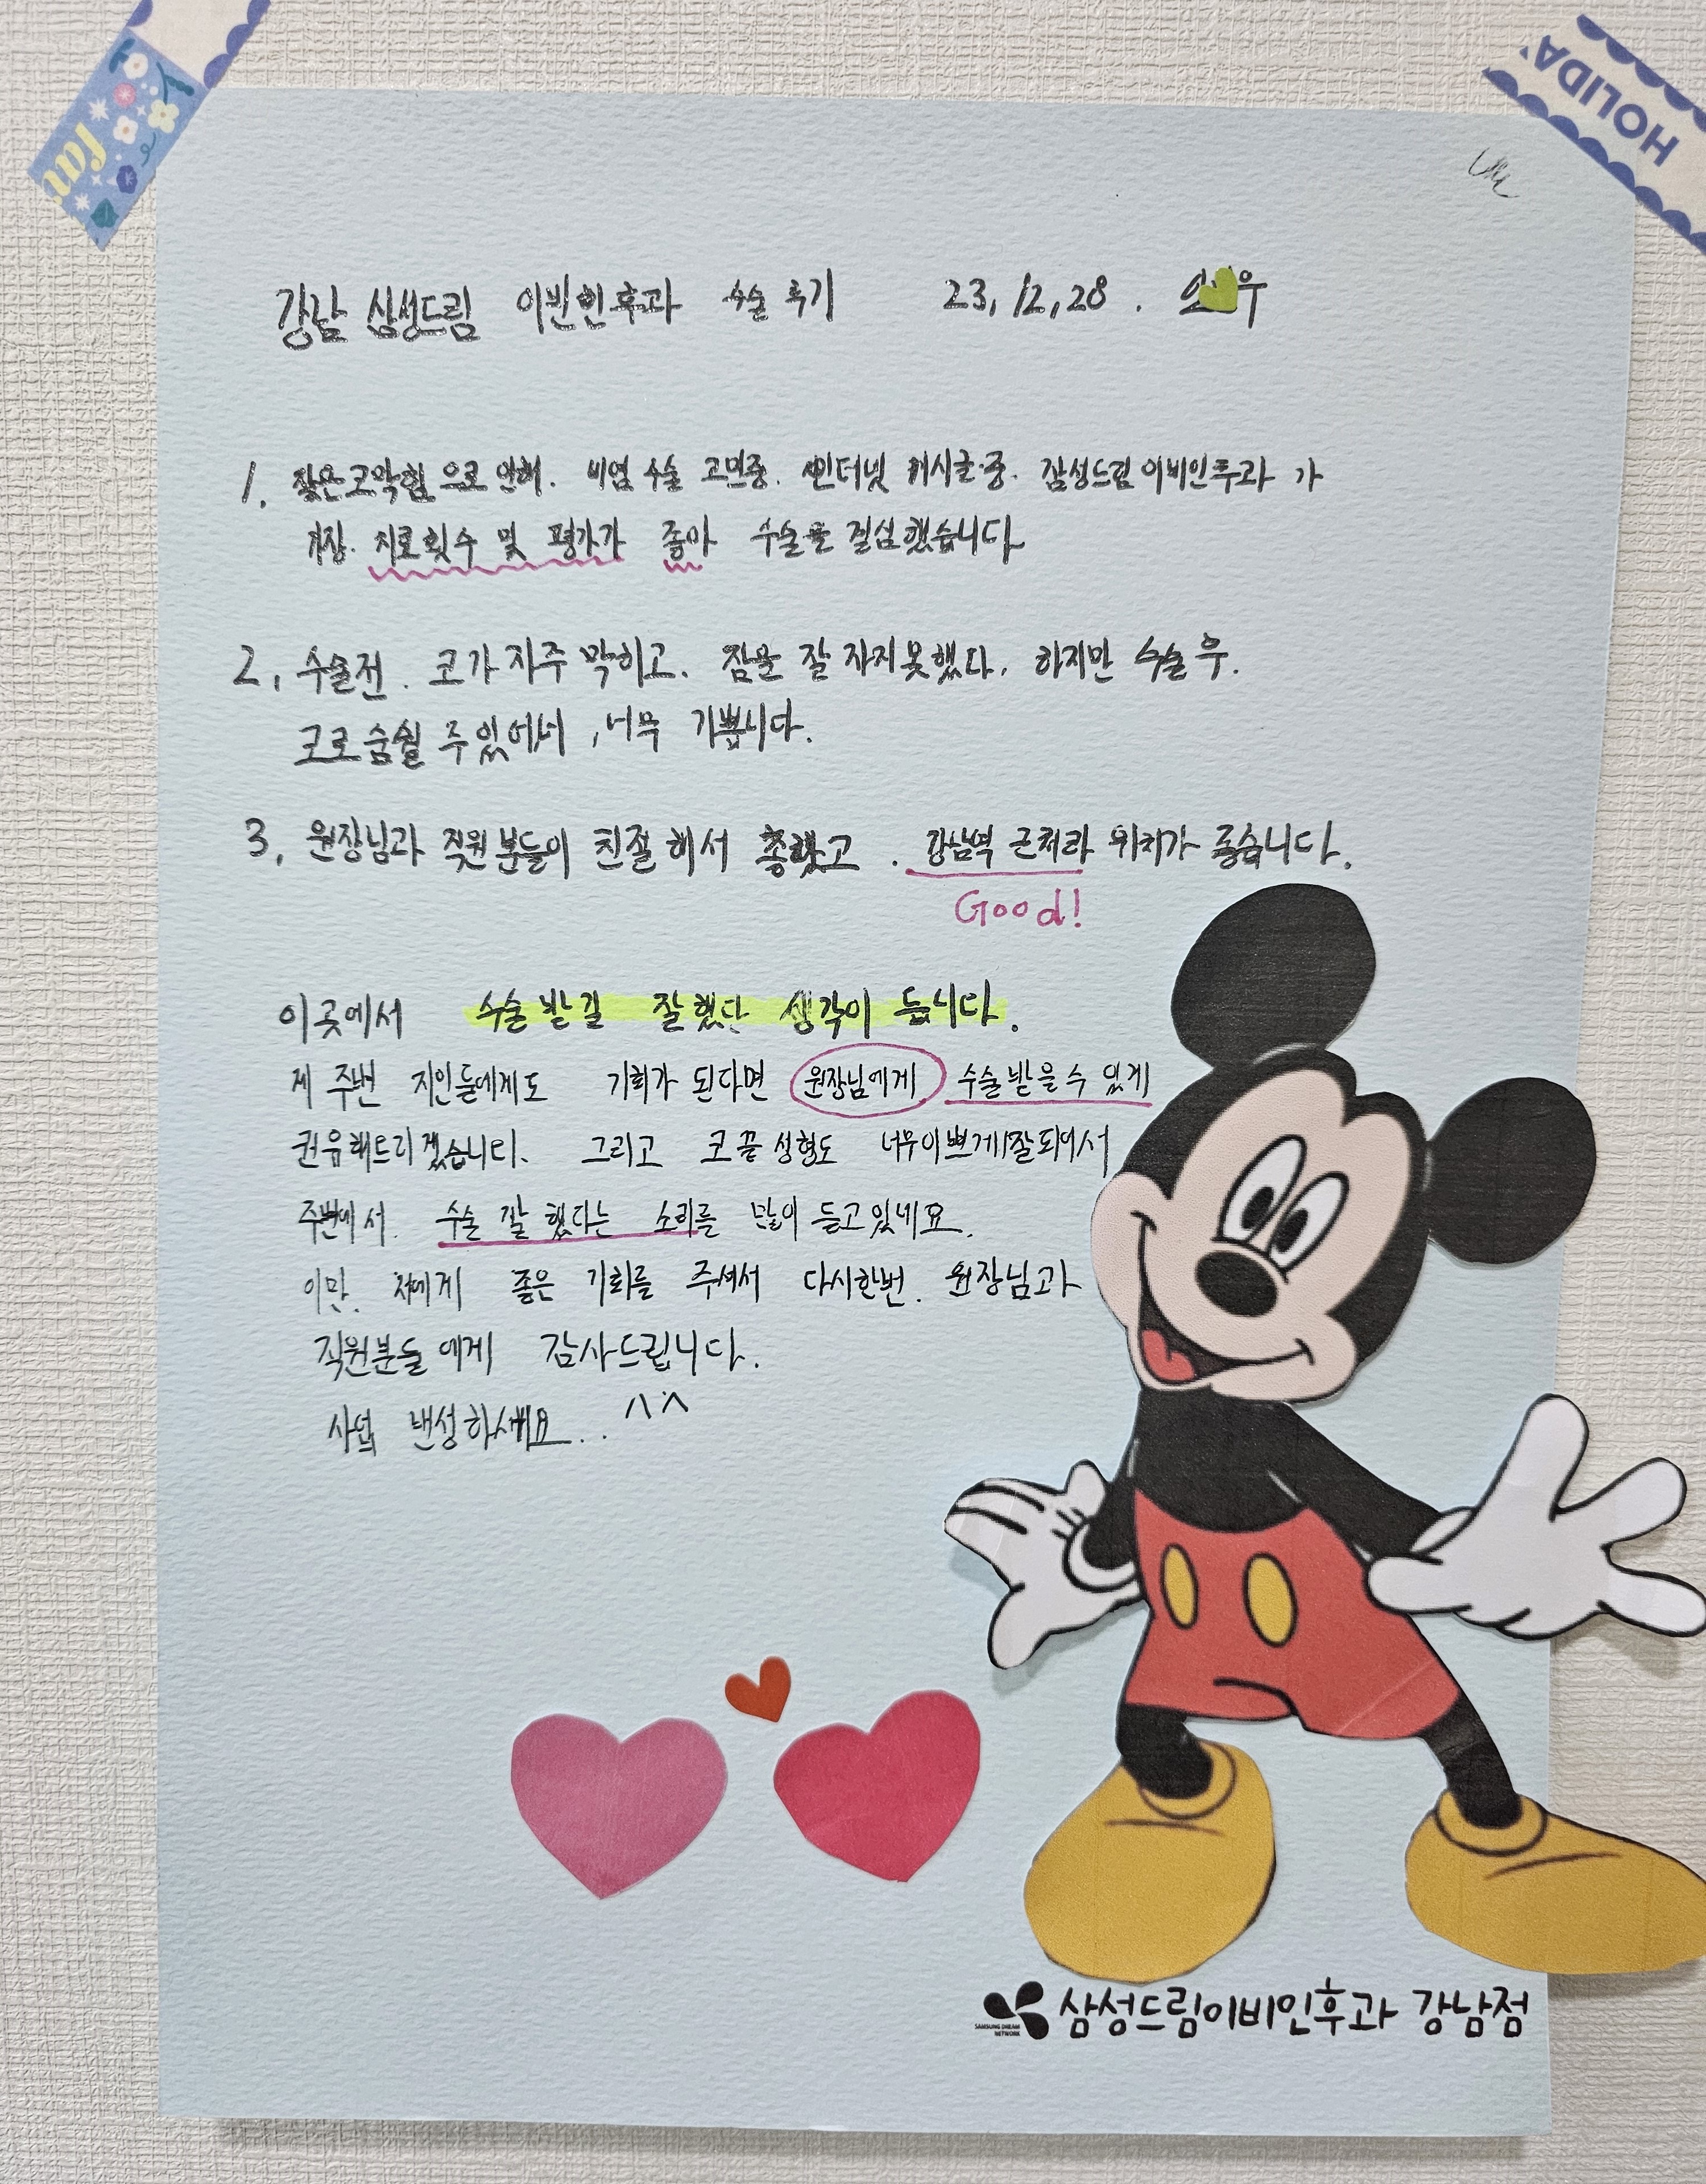 fan
HOLIDAY
강남 삼성드림 이빈인후과 수술 후기 23, 12, 28 .
1. 잦은코막힘 으로 인해. 비염 수술 고민중. 인터넷 게시글중. 삼성드림이비인후과 가
가장. 치료횟수 및 평가가 좋아 수술을 결심했습니다
2. 수술전. 코가 자주 막히고. 잠을 잘 자지못했다. 하지만 수술 후.
코로숨쉴 수있어서 , 너무 기쁩니다.
3. 원장님과 직원분들이 친절해서 좋았고 . 강남역 근처라 위치가 좋습니다.
Good!
이곳에서 수술받길 잘했다 생각이 듭니다.
제 주변 지인들에게도 기회가 된다면 원장님에게 수술받을수 있게
권유해드리겠습니다. 그리고 코끝성형도 너무이쁘게잘되어서
주변에서. 수술 잘 했다는 소리를 많이 듣고있네요.
이만. 저에게 좋은 기회를 주셔서 다시한번. 원장님과
직원분들에게 감사드립니다.
하세요.. ^^
SAMSUNG DREAM
NETWORK
삼성드림이비인후과 강남점